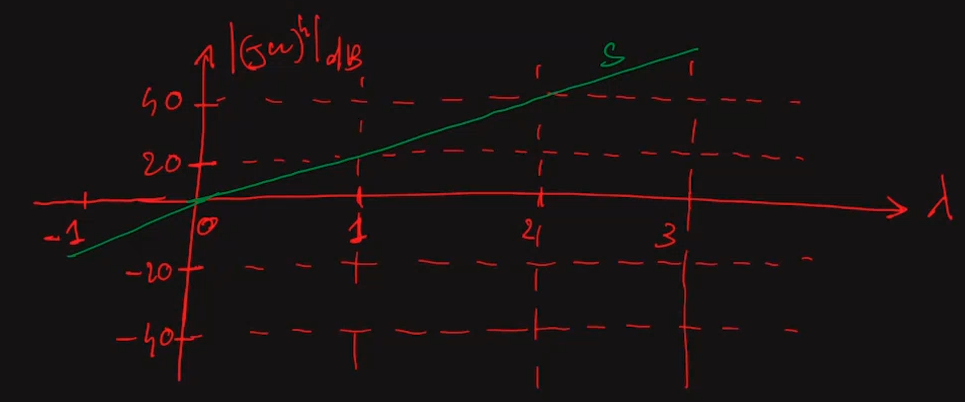 |(jω)^h| dB
S
40
20
λ
-1 0 1 2 3
-20
-40